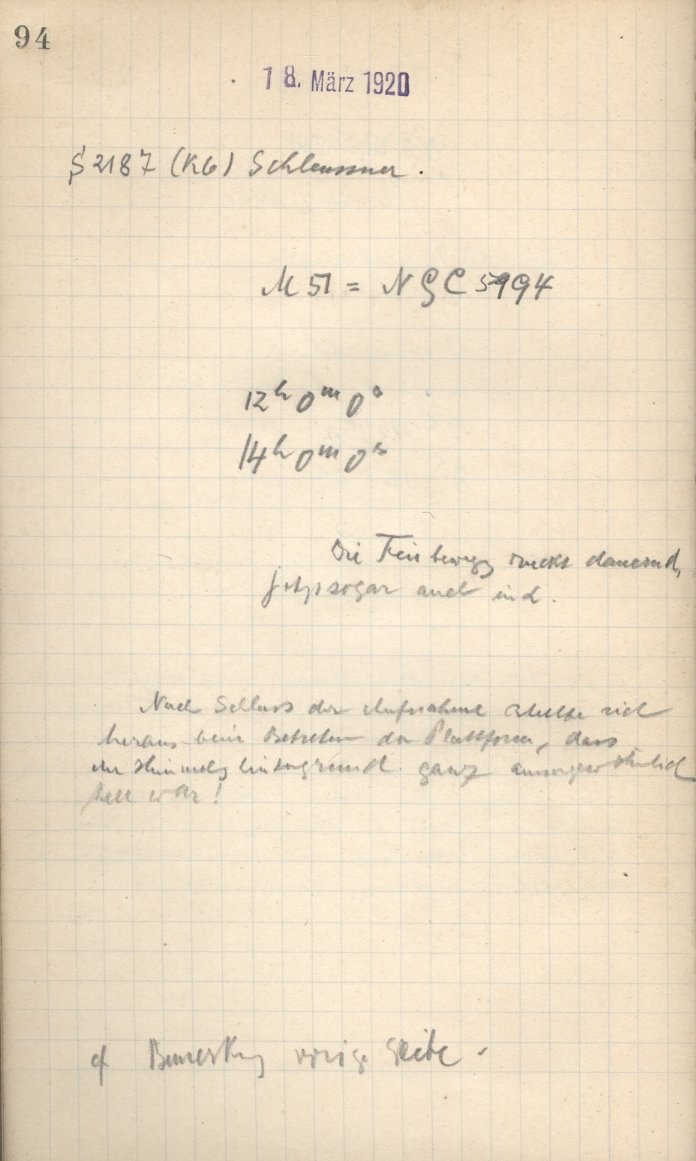 94
18. März 1920
S 2187 (K6) Schleussner.
M 51 = NGC 5194
12h 0m 0s
14h 0m 0s
Die Feinbewegg ruckt dauernd,
jetzt sogar auch in α.
Nach Schluss der Aufnahme stellte sich
heraus beim Betreten der Plattform, dass
der Himmelshintergrund ganz aussergewöhnlich
hell war!
cf Bemerkung vorige Seite.